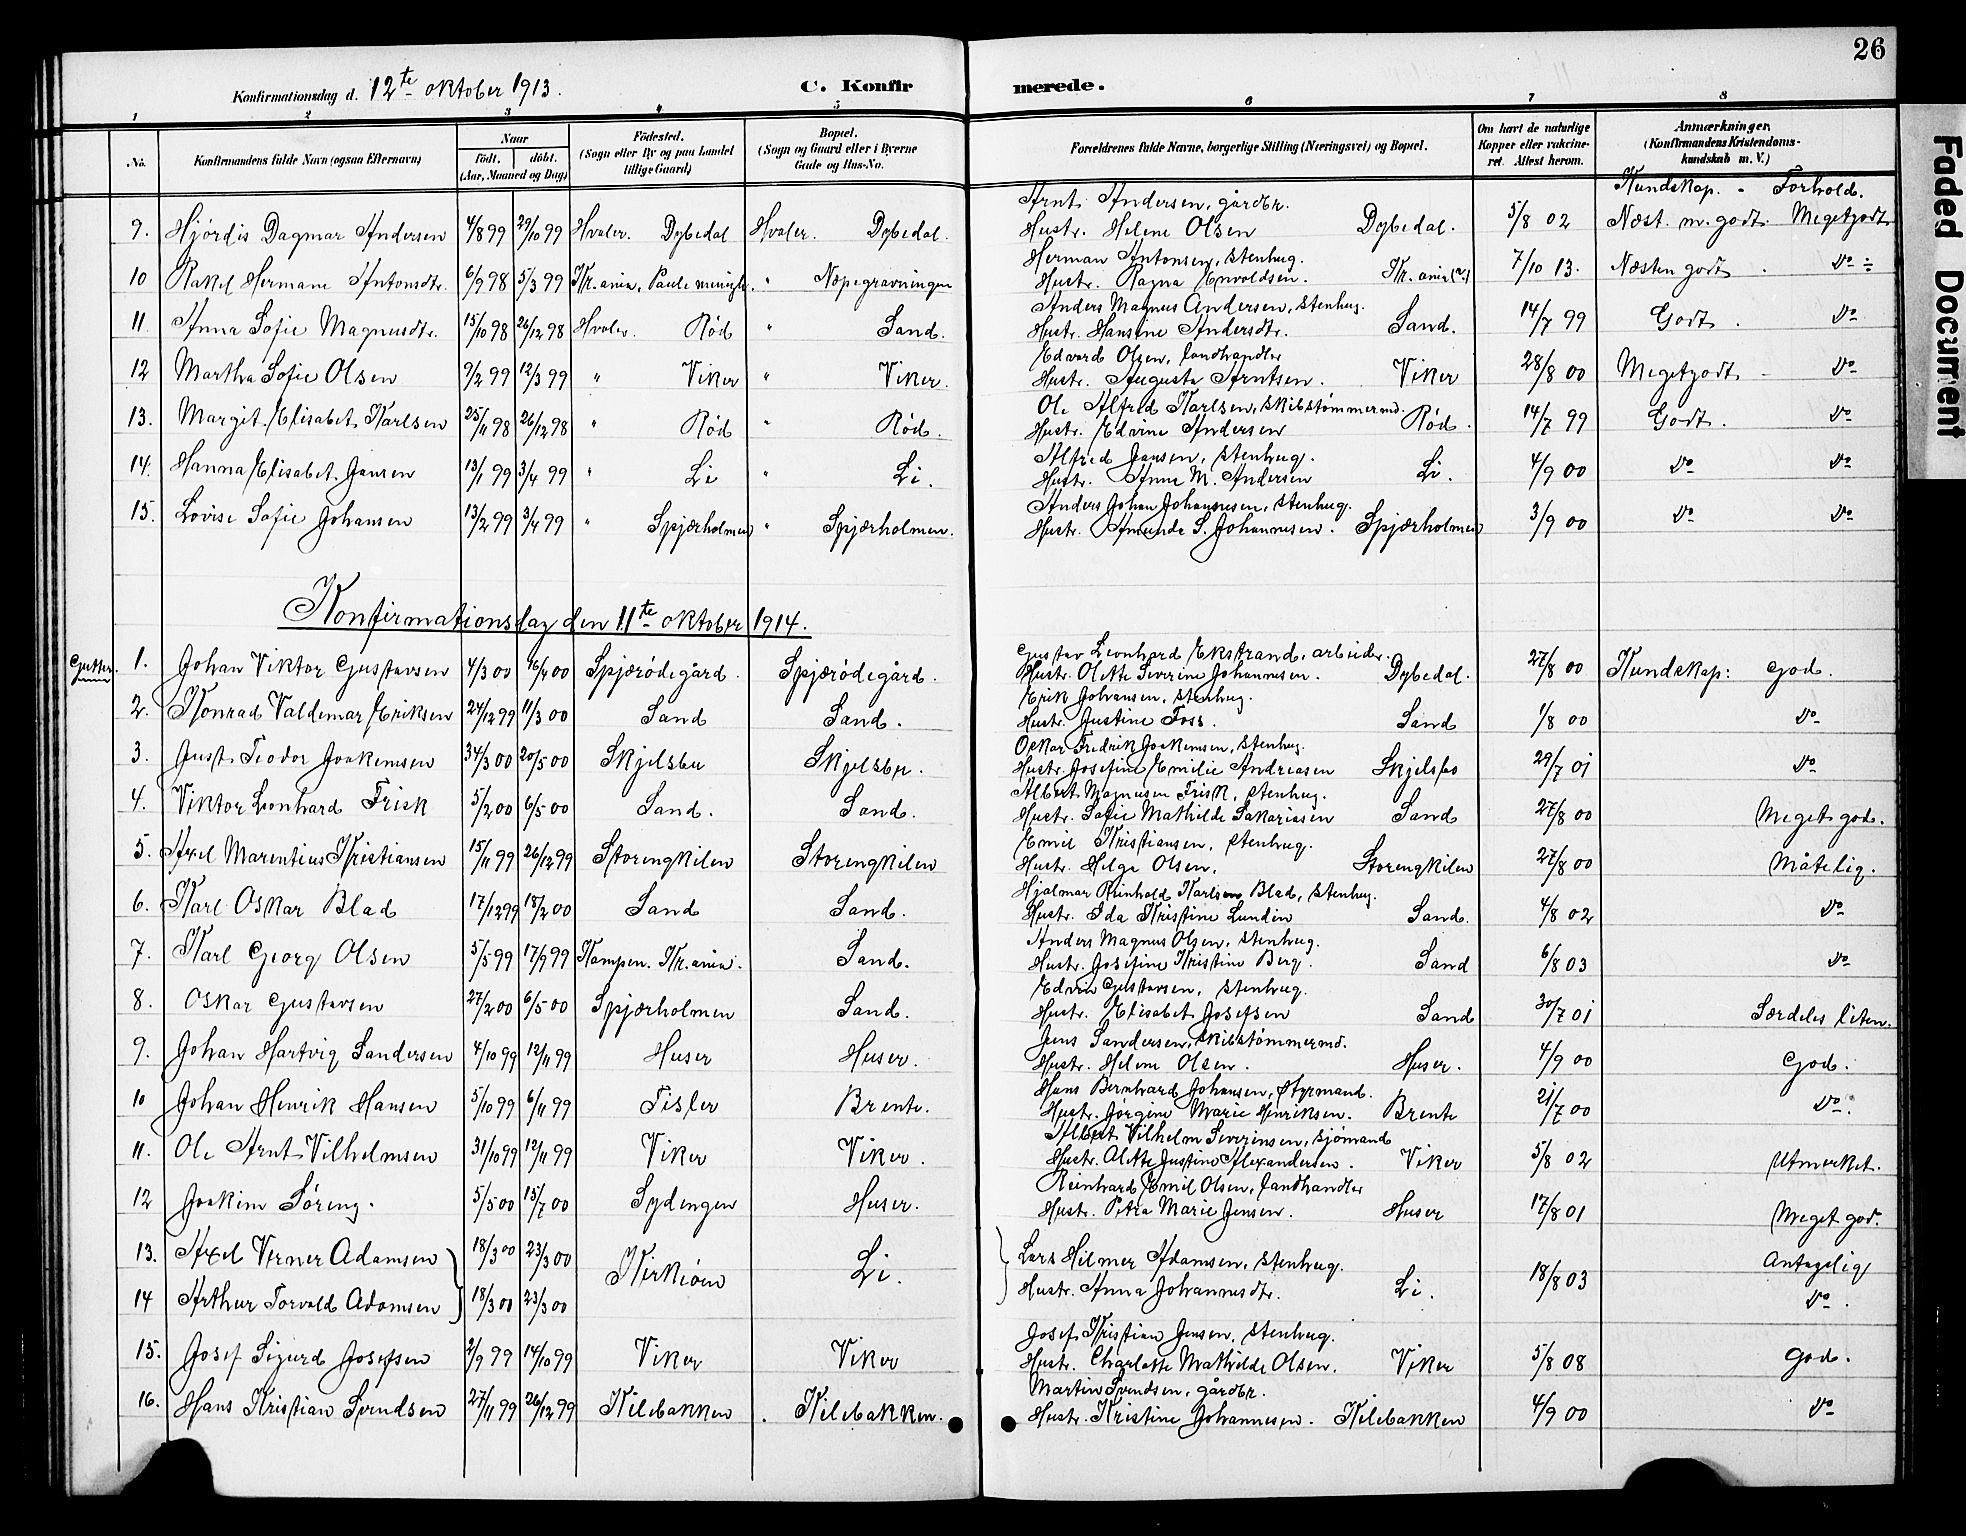 26
Konfirmationsdag d. 12te oktober 1913. C. Konfirmerede.
1 2 3 4 5 6 7 8
No. Konfirmandens fulde Navn (ogsaa Efternavn) Naar født. døbt. (Aar, Maaned og Dag) Födested. (Sogn eller By og paa Landet tillige Gaard) Bopæl. (Sogn og Gaard eller i Byerne Gade og Hus-No. Forældrenes fulde Navne, borgerlige Stilling (Næringsvei) og Bopæl. Om havt de naturlige Kopper eller vakcineret. Attest herom. Anmærkninger. (Konfirmandens Kristendomskundskab m. V.)
Kundskap. - Forhold.
9. Hjørdis Dagmar Andersen 4/8 99 29/10 99 Hvaler. Dybedal Hvaler. Dybedal. Arnt Andersen, gårdbr. Hustr. Helene Olsen Dybedal. 5/8 02 Næst. m. godt. Megetgodt
10 Rakel Hermane Antonsdtr. 6/9 98 5/3 99 Kr.ania, Paule menigh. " Næpegravningen Herman Antonsen, stenhug. Hustr. Ragna Envoldsen. Kr.ania(?) 7/10 13. Næsten godt. do ÷
11. Anna Sofie Magnusdtr. 15/10 98 26/12 98 Hvaler. Rød " Sand. Anders Magnus Andersen, stenhug. Hustr. Hansine Andersdtr. Sand. 14/7 99 Godt. do
12 Martha Sofie Olsen 9/2 99 12/3 99 " Viker " Viker. Edvard Olsen, landhandler Hustr. Augusta Arntsen. Viker 28/8 00 Megetgodt - do
13. Margit Elisabet Karlsen 25/11 98 26/12 98 " Rød " Rød. Ole Alfred Karlsen, skibstømmermd. Hustr. Edvine Andersen Rød. 14/7 99 Godt. do
14. Hanna Elisabet Jansen 13/1 99 3/4 99 " Li " Li. Alfred Jansen, stenhug. Hustr. Anne M. Andersen Li. 4/9 00 do do
15. Lovise Sofie Johansen 13/2 99 3/4 99 " Spjærholmen " Spjærholmen. Anders Johan Johannesen, stenhug. Hustr. Amunda S. Johannesen. Spjærholmen 3/9 00 do do
Konfirmationsdag den 11te oktober 1914.
Gutter. 1. Johan Viktor Gustavsen 4/3 00 16/4 00 Spjærødegård. Spjærødegård. Gustav Leonhard Ekstrand, arbeider. Hustr. Olette Severine Johannesen. Dybedal. 27/8 00 Kundskap: god.
2. Konrad Valdemar Eriksen 24/12 99 11/3 00 Sand Sand. Erik Johansen, stenhug. Hustr. Justine Foss. Sand 1/8 00 do
3. Gust. Teodor Joakimsen 31/3 00 20/5 00 Skjelsbu Skjelsbu. Oskar Fredrik Joakimsen, stenhug. Hustr. Josefine Emilie Andreasen Skjelsbo 29/7 01 do
4. Viktor Leonhard Frisk 5/2 00 6/5 00 Sand. Sand. Albert Magnusen Frisk, stenhug. Hustr. Sofie Mathilde Sakariasen Sand 27/8 00 Meget god.
5. Axel Marentius Kristiansen 15/11 99 26/12 99 Storengkilen Storengkilen Emil Kristiansen, stenhug. Hustr. Helga Olsen. Storengkilen 27/8 00 Måtelig.
6. Karl Oskar Blad 17/12 99 18/2 00 Sand Sand. Hjalmar Reinhold Karlsen Blad, stenhug. Hustr. Ida Kristine Lundin Sand. 4/8 02 do
7. Karl Georg Olsen 5/5 99 17/9 99 Kampen. Kr.ania. Sand. Anders Magnus Olsen, stenhug. Hustr. Josefine Kristine Berg. Sand 6/8 03 do
8. Oskar Gustavsen 27/2 00 6/5 00 Spjærholmen Sand. Edvin Gustavsen, stenhug. Hustr. Elisabet Josefsen Sand 30/7 01 Særdeles liten.
9. Johan Hartvig Sandersen 4/10 99 12/11 99 Huser Huser. Jens Sandersen, skibstømmermd. Hustr. Helene Olsen. Huser. 4/9 00 God.
10 Johan Henrik Hansen 5/10 99 6/11 99 Tisler Brente. Hans Bernhard Johansen, styrmand. Hustr. Jørgene Marie Henriksen. Brente 21/7 00 do.
11. Ole Arnt Vilhelmsen 31/10 99 12/11 99 Viker Viker. Albert Vilhelm Severinsen, sjømand Hustr. Olette Justine Alexandersen. Viker 5/8 02 Utmerket.
12 Joakim Søreng. 5/5 00 15/7 00 Sydengen Huser. Reinhard Emil Olsen, landhandler Hustr. Petra Marie Jensen. Huser 17/8 01 Meget god.
13. Axel Verner Adamsen 18/3 00 23/3 00 Kirkøen Li. Lars Hilmer Adamsen, stenhug. Hustr. Anna Johannesdtr. Li. 18/8 03 Antagelig
14 Arthur Torvald Adamsen 18/3 00 23/3 00 do.
15. Josef Sigurd Josefsen 2/9 99 14/10 99 Viker Viker Josef Kristian Jensen, stenhug. Hustr. Charlotte Mathilde Olsen. Viker 5/8 08 God.
16. Hans Kristian Svendsen 27/11 99 26/12 99 Kilebakken. Kilebakken. Martin Svendsen, gårdbr. Hustr. Kristine Johannesen. Kilebakken 4/9 00 do
Faded Document